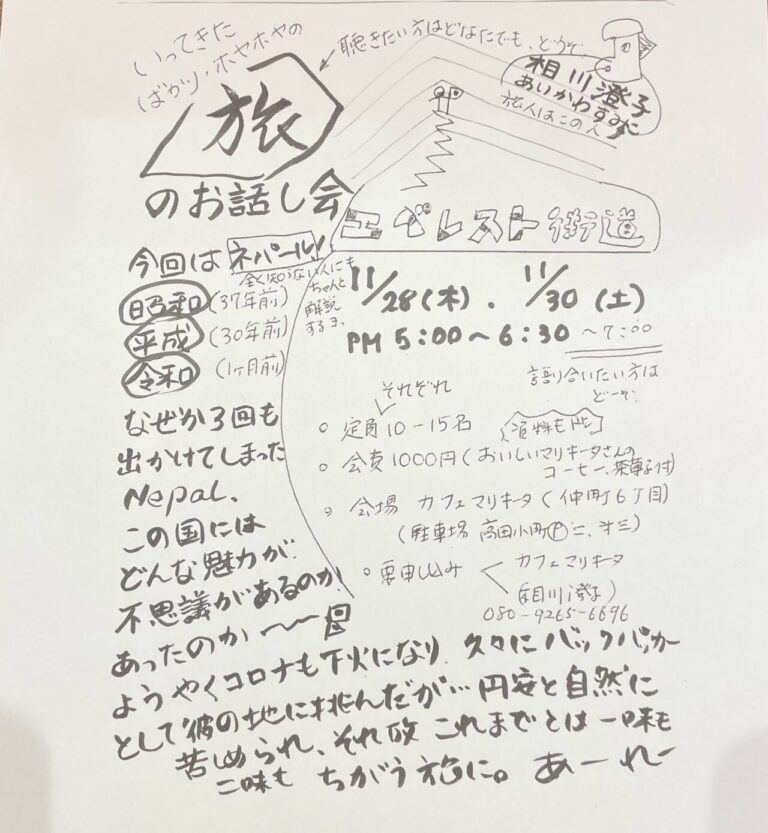 いってきた
ばかり、ホヤホヤの
旅
のお話し会
聴きたい方はどなたでも、どうぞ
相川澄子
あいかわすみこ
旅人はこの人
エベレスト街道
今回はネパール!
全く知らない人にも
ちゃんと
解説
するヨ、
昭和(37年前)
平成(30年前)
令和(1ヶ月前)
なぜか3回も
出かけてしまった
Nepal、
この国には
どんな魅力が
不思議があるのか
あったのか〜〜
11/28(木)、11/30(土)
PM 5:00〜6:30 〜7:00
語り合いたい方は
どーぞ、
それぞれ
定員10-15名
資料も
会費1000円(おいしいマリキータさんの
コーヒー、茶菓子付)
会場 カフェマリキータ(仲町6丁目)
(駐車場 高田小町Ⓟ二、オ三)
要申し込み カフェマリキータ
(相川澄子)
080-9265-6696
ようやくコロナも下火になり 久々にバックパッカー
として彼の地に挑んだが…円安と自然に
苦しめられ、それ故 これまでとは一味も
二味も ちがう旅に。あーれー